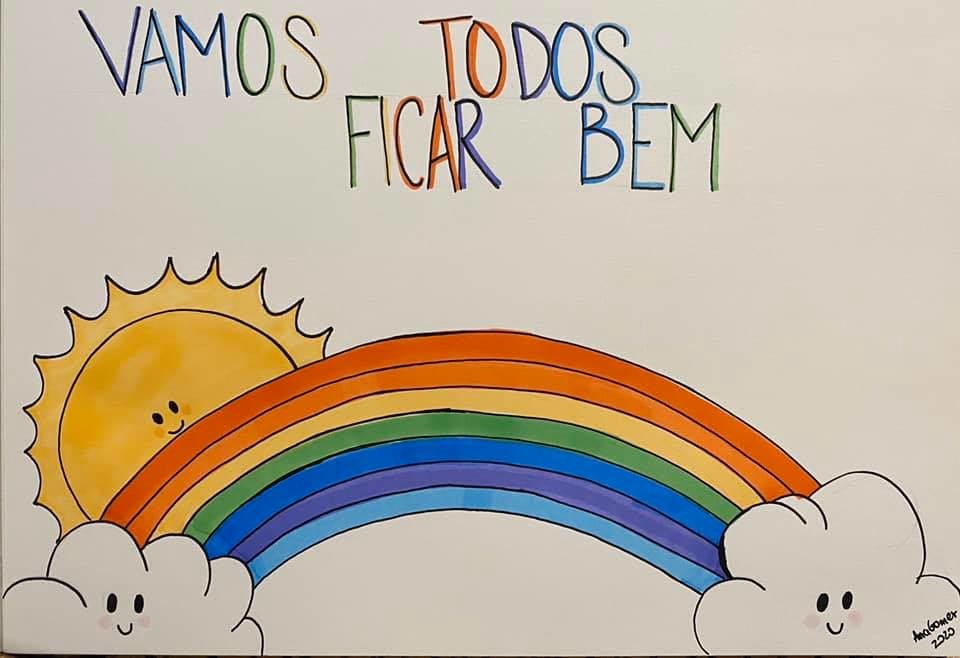 VAMOS TODOS
FICAR BEM
AnaGomes
2020